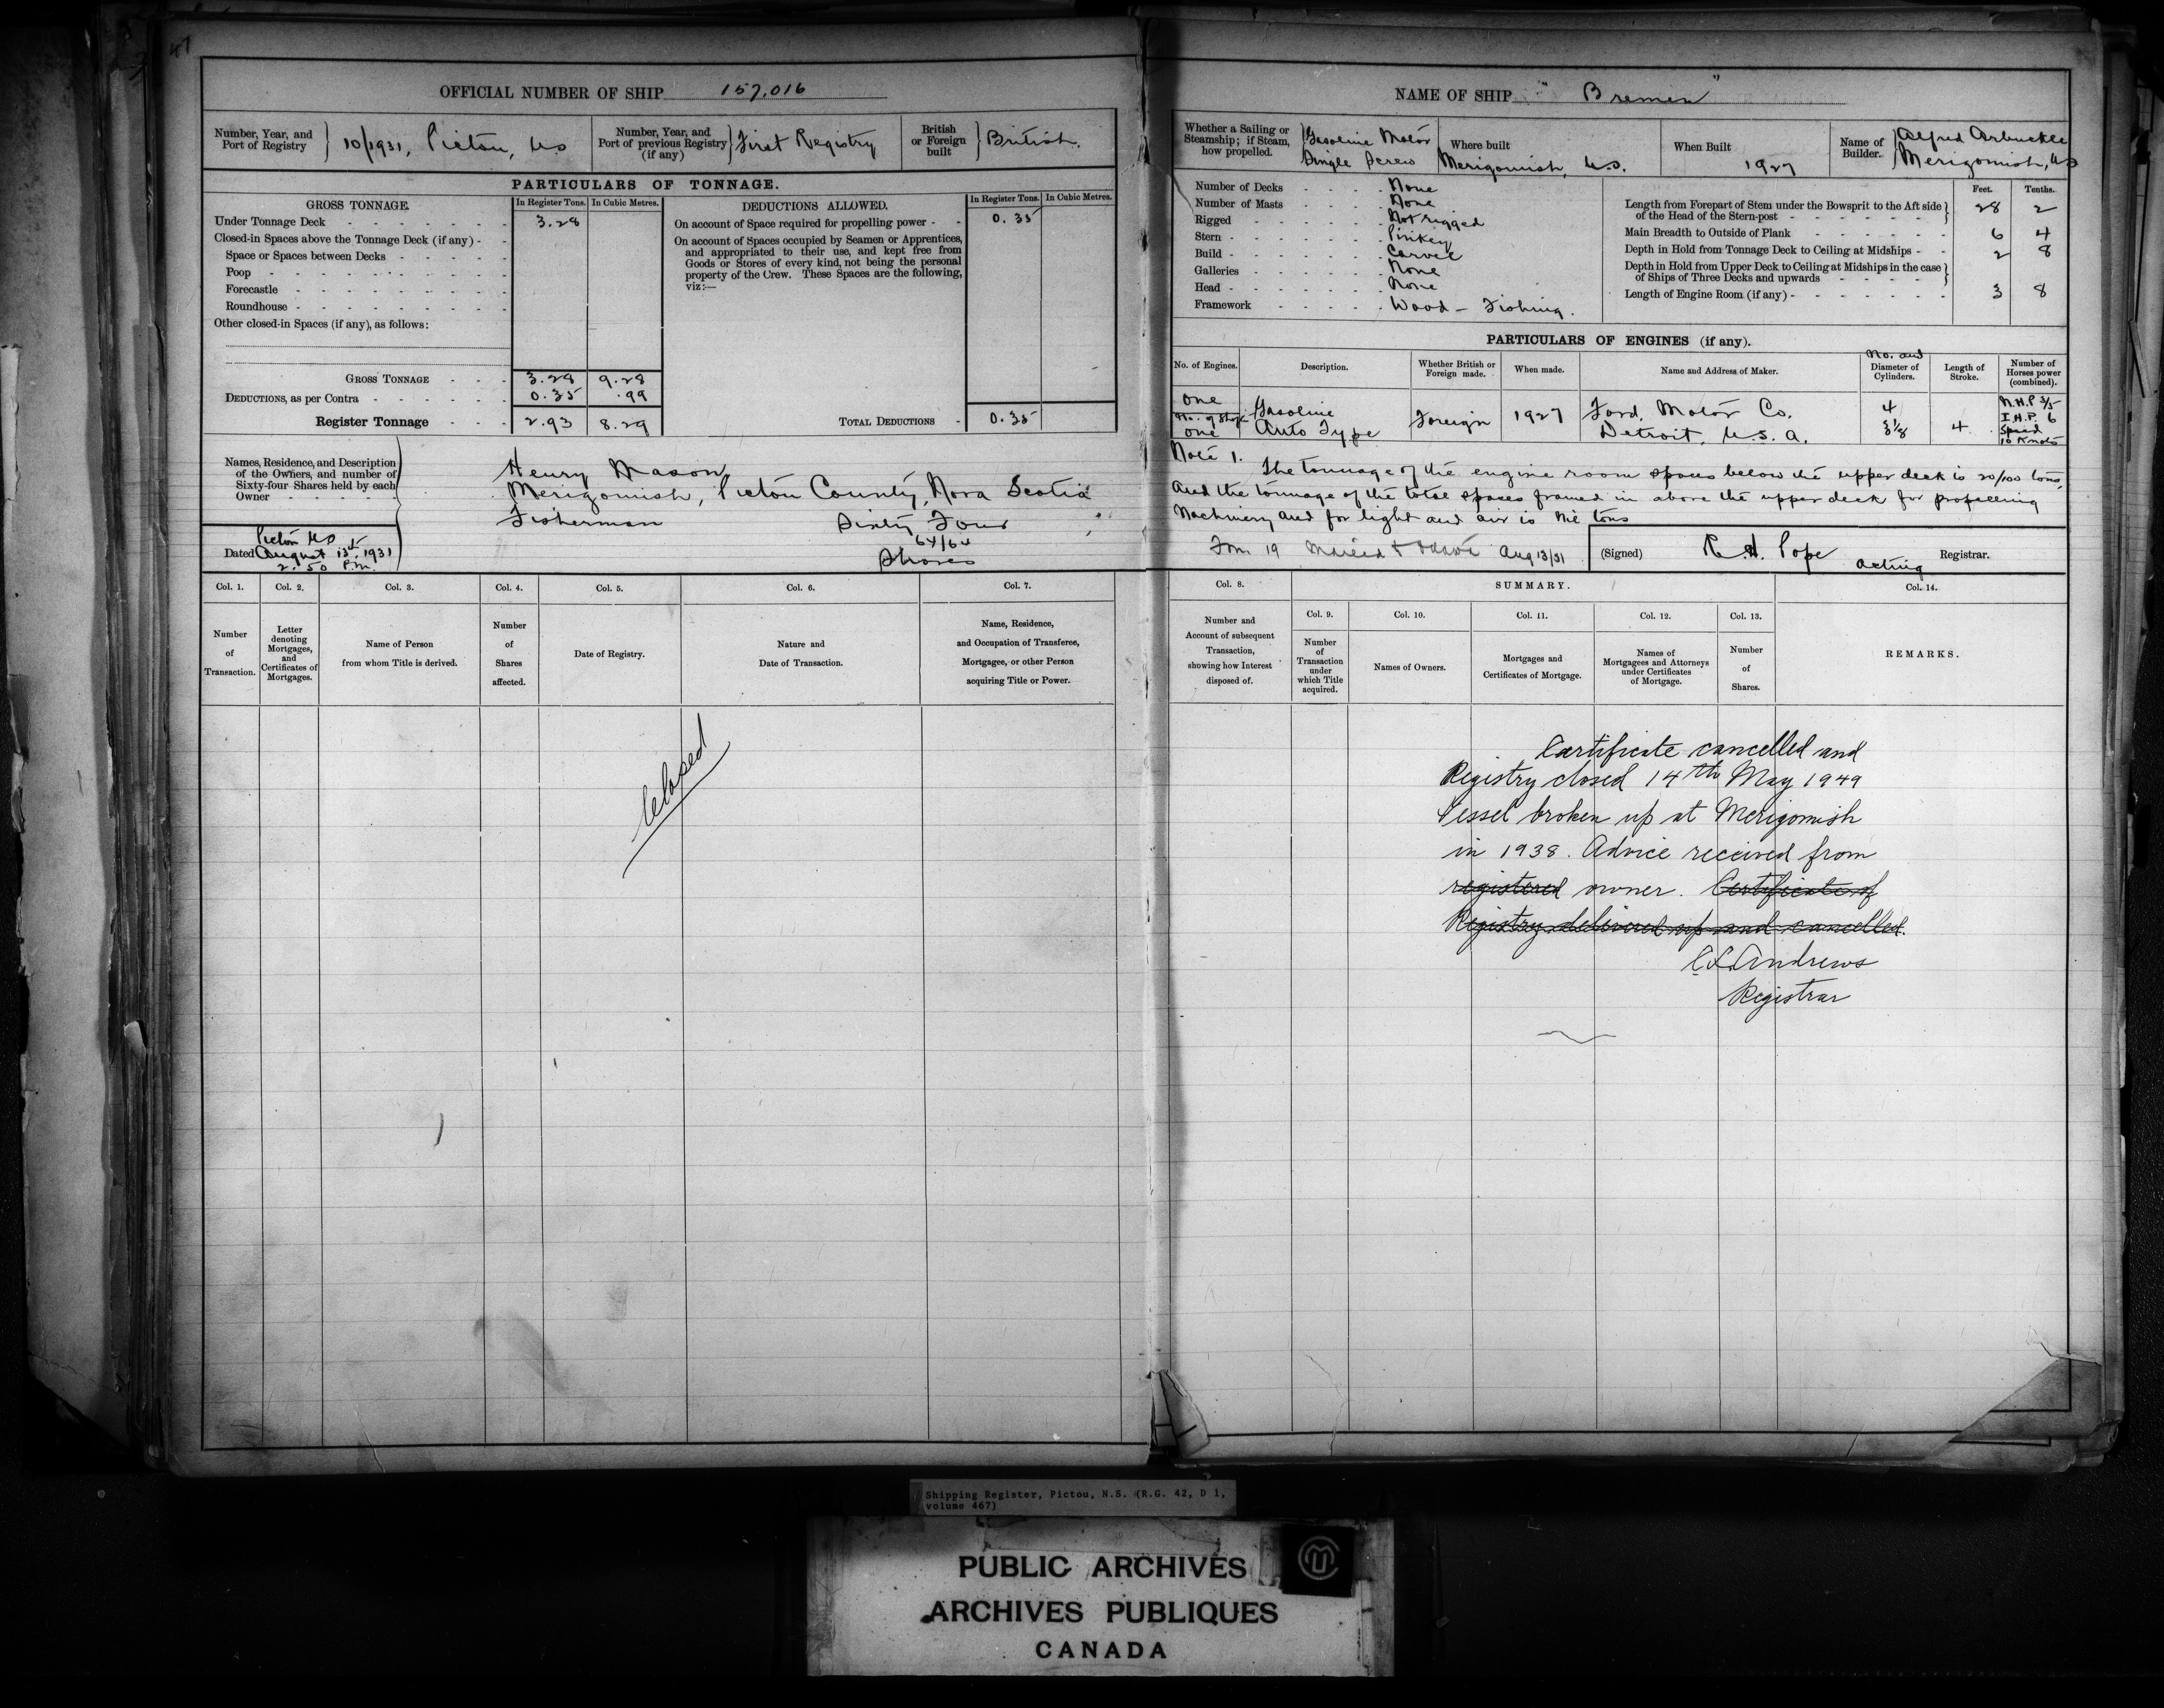 47
OFFICIAL NUMBER OF SHIP 157,016
Number, Year, and Port of Registry } 10/1931, Pictou, NS
Number, Year, and Port of previous Registry (if any) } First Registry
British or Foreign built } British.
PARTICULARS OF TONNAGE.
GROSS TONNAGE. In Register Tons. In Cubic Metres.
Under Tonnage Deck 3.28
Closed-in Spaces above the Tonnage Deck (if any)
Space or Spaces between Decks
Poop
Forecastle
Roundhouse
Other closed-in Spaces (if any), as follows:
GROSS TONNAGE 3.28 9.28
DEDUCTIONS, as per Contra 0.35 .99
Register Tonnage 2.93 8.29
DEDUCTIONS ALLOWED. In Register Tons. In Cubic Metres.
On account of Space required for propelling power 0.35
On account of Spaces occupied by Seamen or Apprentices,
and appropriated to their use, and kept free from
Goods or Stores of every kind, not being the personal
property of the Crew. These Spaces are the following,
viz:—
TOTAL DEDUCTIONS 0.35
Names, Residence, and Description
of the Owners, and number of
Sixty-four Shares held by each
Owner
Henry Mason
Merigomish, Pictou County, Nova Scotia
Fisherman Sixty Four
64/64
Shares
Pictou NS
Dated August 13th, 1931
2.50 P.m.
Col. 1. Col. 2. Col. 3. Col. 4. Col. 5. Col. 6. Col. 7.
Number of Transaction.
Letter denoting Mortgages, and Certificates of Mortgages.
Name of Person from whom Title is derived.
Number of Shares affected.
Date of Registry.
Nature and Date of Transaction.
Name, Residence, and Occupation of Transferee, Mortgagee, or other Person acquiring Title or Power.
Closed
NAME OF SHIP "Bremen"
Whether a Sailing or Steamship; if Steam, how propelled. } Gasoline Motor Single Screw
Where built Merigomish, N.S.
When Built 1927
Name of Builder. } Alfred Arbuckle Merigomish, NS
Number of Decks None
Number of Masts None
Rigged Not rigged
Stern Pinkey
Build Carvel
Galleries None
Head None
Framework Wood - Fishing.
Feet. Tenths.
Length from Forepart of Stem under the Bowsprit to the Aft side of the Head of the Stern-post 28 2
Main Breadth to Outside of Plank 6 4
Depth in Hold from Tonnage Deck to Ceiling at Midships 2 8
Depth in Hold from Upper Deck to Ceiling at Midships in the case of Ships of Three Decks and upwards
Length of Engine Room (if any) 3 8
PARTICULARS OF ENGINES (if any).
No. of Engines. Description. Whether British or Foreign made. When made. Name and Address of Maker. No. and Diameter of Cylinders. Length of Stroke. Number of Horses power (combined).
One
No. of Shafts
One
Gasoline
Auto Type
Foreign
1927
Ford Motor Co.
Detroit, U.S.A.
4
3 1/8
4
N.H.P 3/5
I.H.P. 6
Speed
10 Knots
Note 1.
The tonnage of the engine room spaces below the upper deck is 20/100 tons,
And the tonnage of the total spaces framed in above the upper deck for propelling
Machinery and for light and air is Nil tons
Aug 13/31
(Signed) R.H. Pope Acting Registrar.
Col. 8. SUMMARY. Col. 14.
Col. 9. Col. 10. Col. 11. Col. 12. Col. 13.
Number and Account of subsequent Transaction, showing how Interest disposed of.
Number of Transaction under which Title acquired.
Names of Owners.
Mortgages and Certificates of Mortgage.
Names of Mortgagees and Attorneys under Certificates of Mortgage.
Number of Shares.
REMARKS.
Certificate cancelled and
Registry closed 14th May 1949
Vessel broken up at Merigomish
in 1938. Advice received from
registered owner. Certificate of
Registry delivered up and cancelled.
Andrews
Registrar
Shipping Register, Pictou, N.S. (R.G. 42, D 1,
volume 467)
PUBLIC ARCHIVES
ARCHIVES PUBLIQUES
CANADA